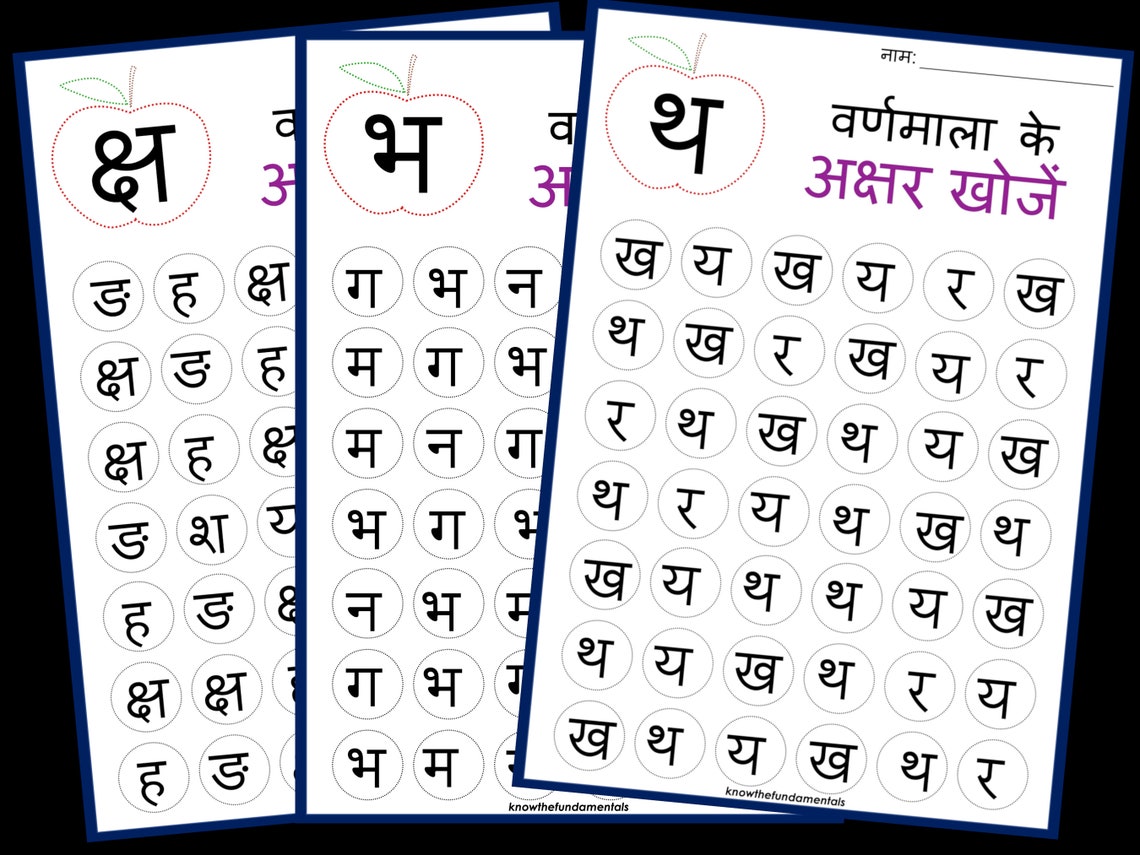 क्ष
व
अ
ङ ह क्ष
क्ष ङ ह
क्ष ह क्ष
ङ श
ह ङ
क्ष क्ष
ह ङ
भ
व
अ
ग भ न
म ग भ
म न ग
भ ग भ
न भ म
ग भ
भ म
knowthefundamentals
नाम:
थ
वर्णमाला के
अक्षर खोजें
ख य ख य र ख
थ ख र ख य र
र थ ख थ य ख
थ र य थ ख थ
ख य थ थ य ख
थ य ख थ र य
ख थ य ख थ र
knowthefundamentals